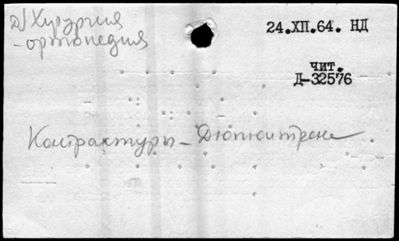 д) Хирургия
- ортопедия
24.XII.64. НД
чит.
Д-32576
Контрактуры - Дюпюитрена